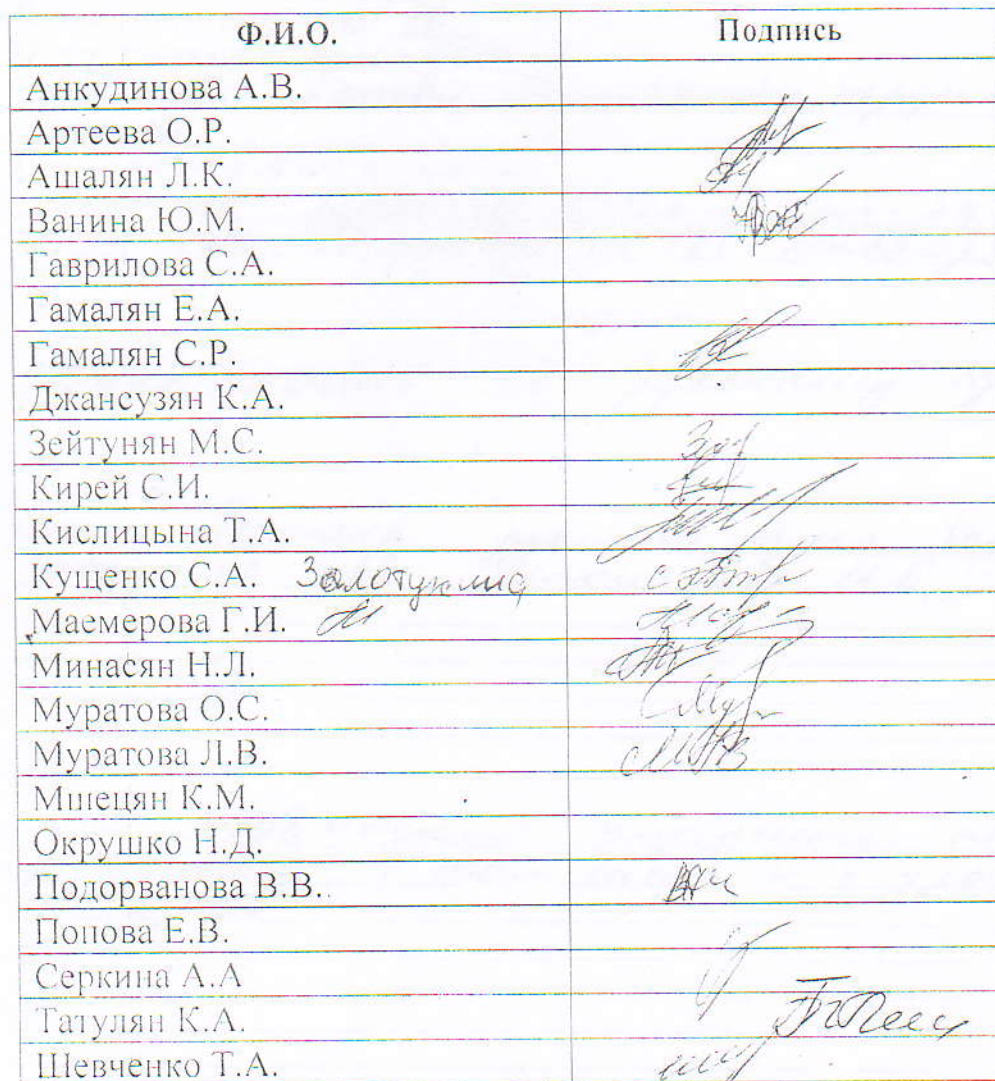 Ф.И.О. Подпись
Анкудинова А.В.
Артеева О.Р.
Ашалян Л.К.
Ванина Ю.М.
Гаврилова С.А.
Гамалян Е.А.
Гамалян С.Р.
Джансузян К.А.
Зейтунян М.С.
Кирей С.И.
Кислицына Т.А.
Кущенко С.А.
Маемерова Г.И.
Минасян Н.Л.
Муратова О.С.
Муратова Л.В.
Мшецян К.М.
Окрушко Н.Д.
Подорванова В.В.
Попова Е.В.
Серкина А.А
Татулян К.А.
Шевченко Т.А.